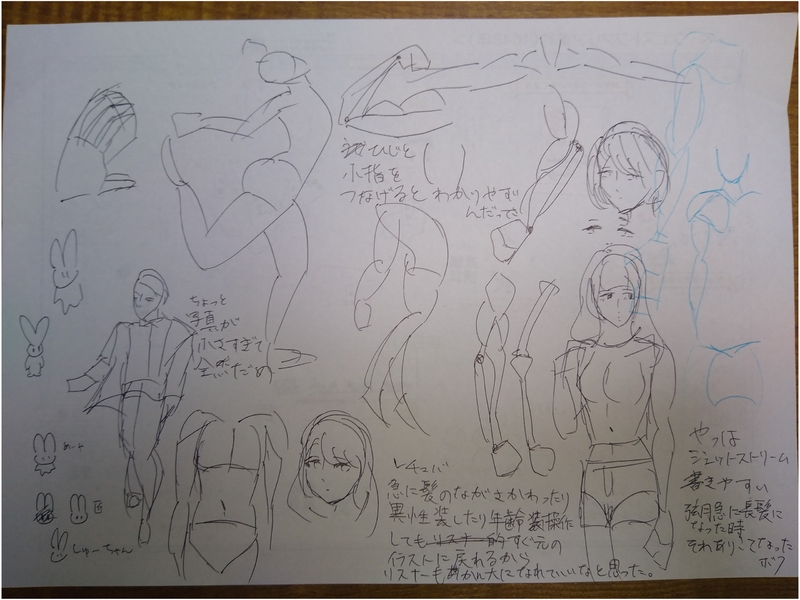 ひじと
小指を
つなげると わかりやすい
んだった
ちょっと
写真が
小さすぎて
全然だめ
レチュバ
急に髪のながさかわったり
異性装したり年齢操作
しても すぐ元の
イラストに戻れるから
リスナーも になれていいなと思った。
やっぱ
ジェットストリーム
書きやすい
急に長髪に
なった時
それありってなった
ボク
しゅーちゃん